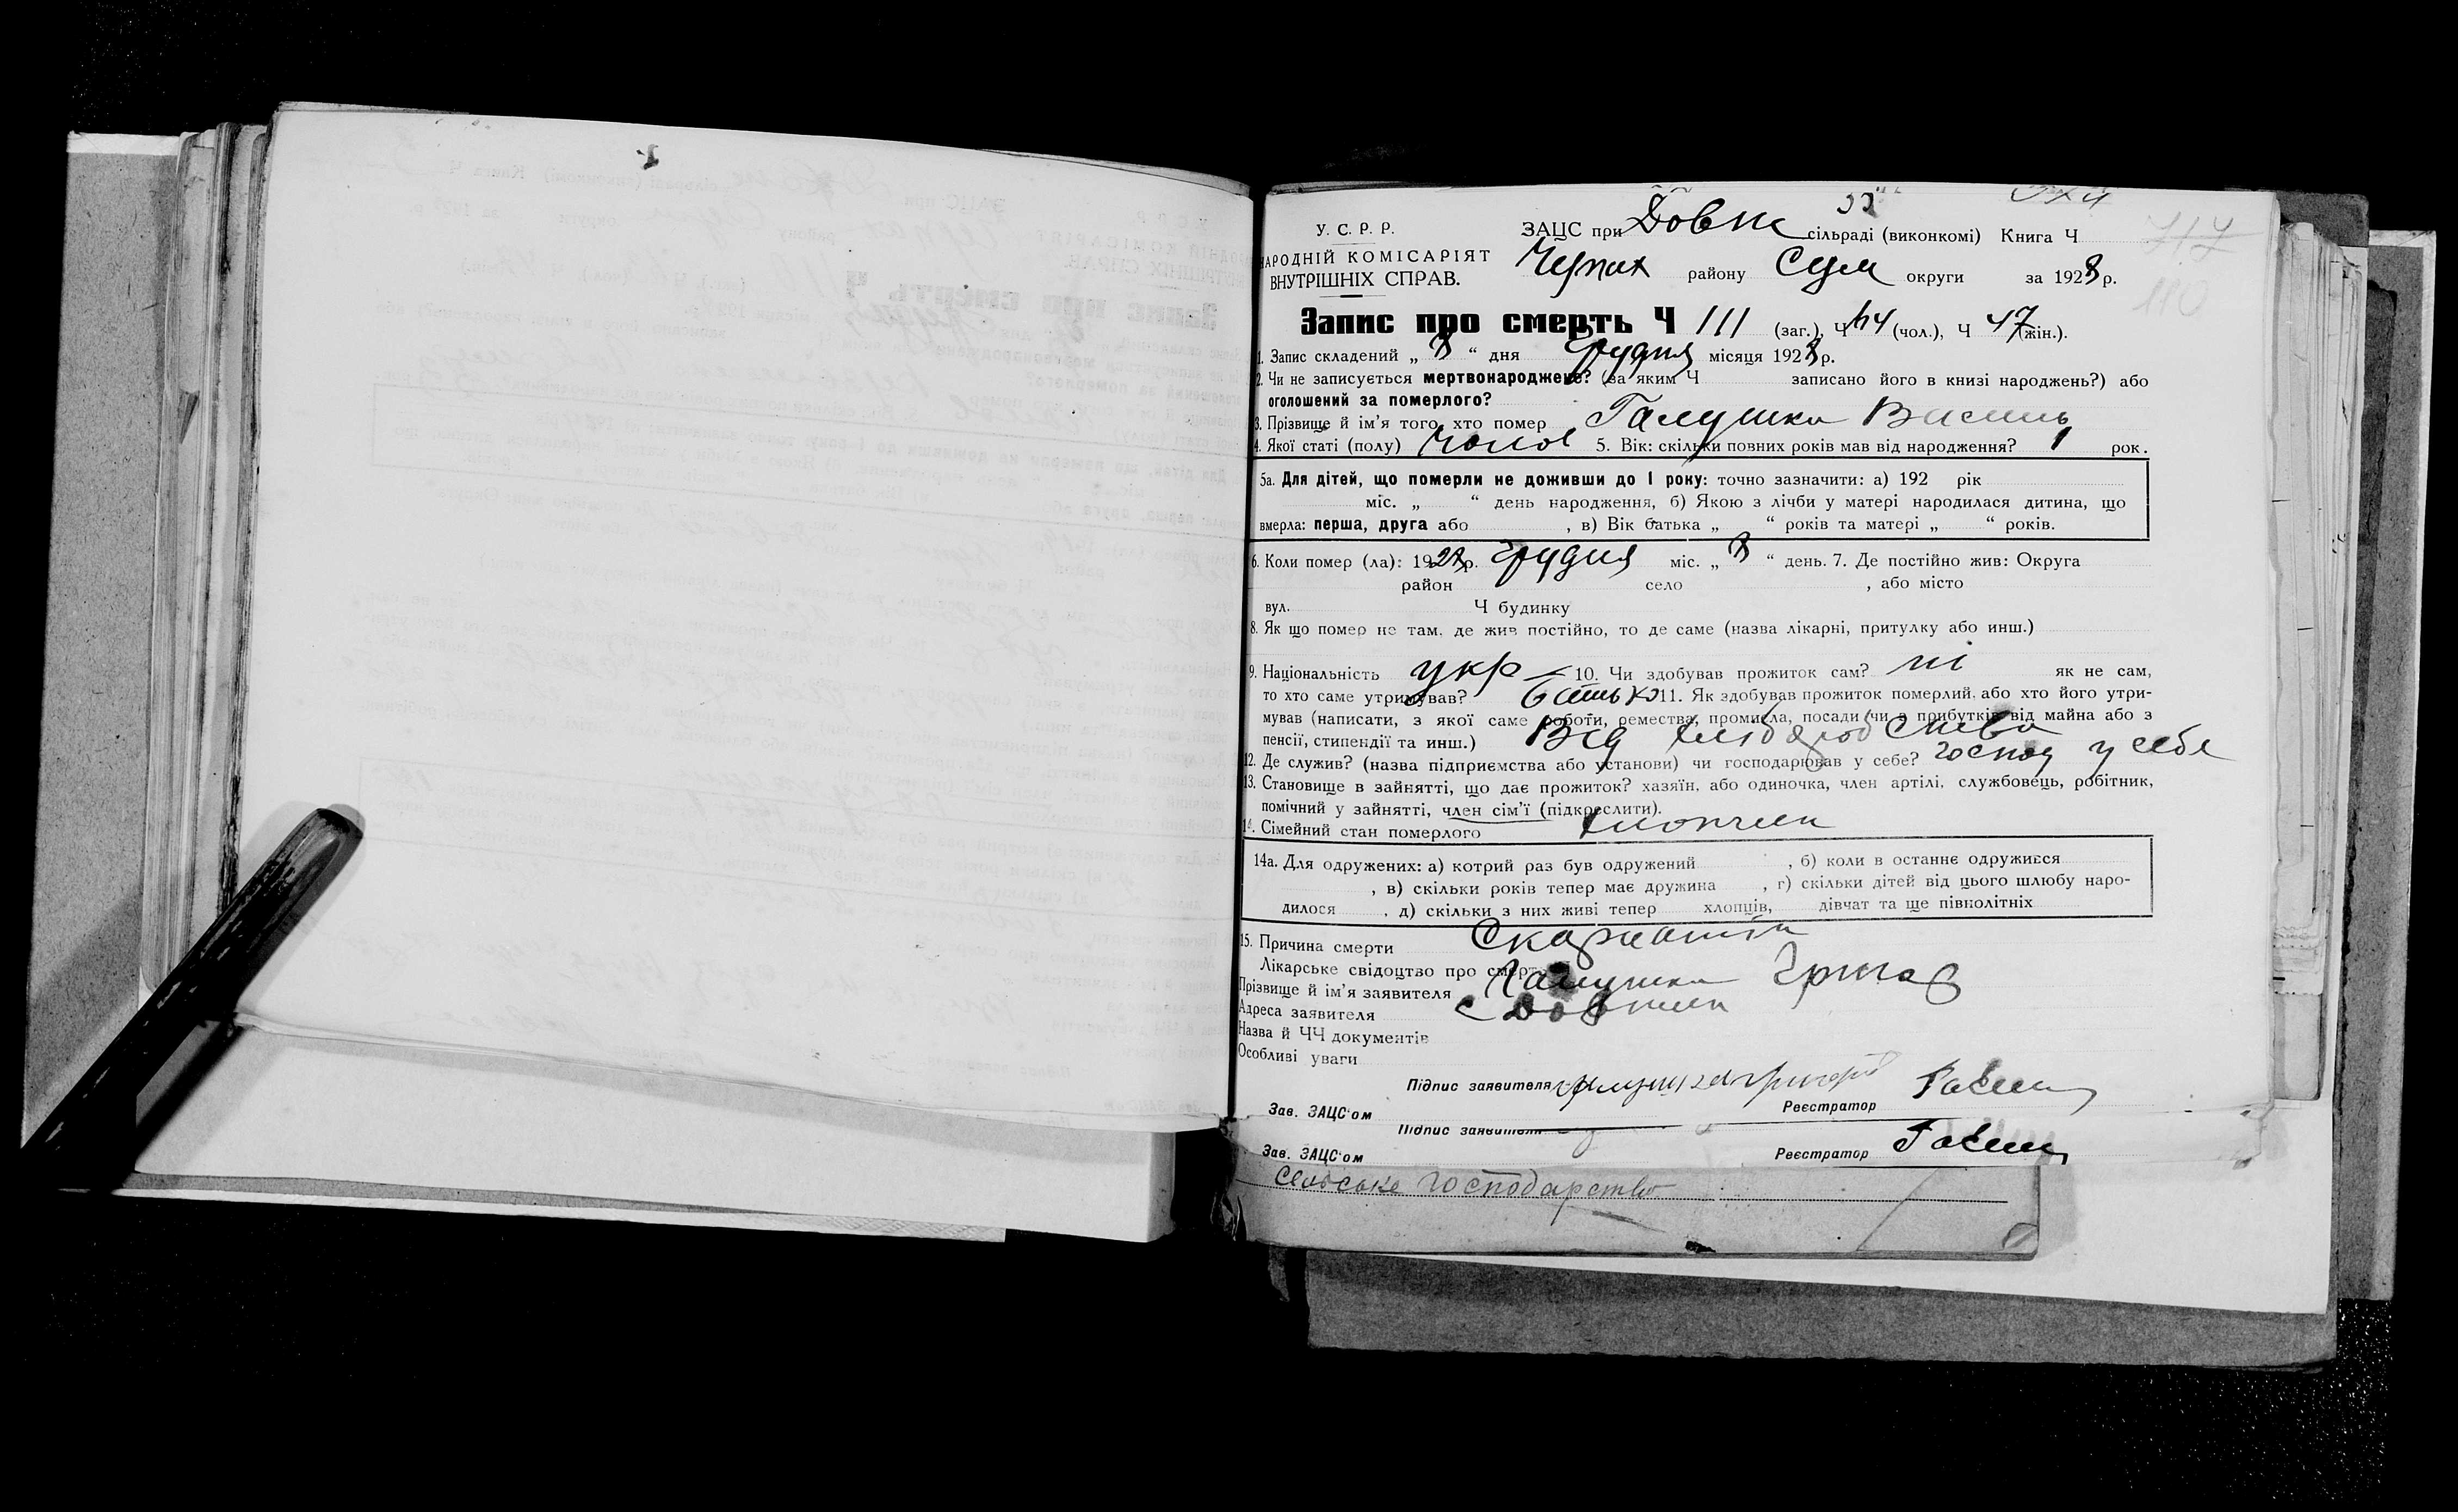 У. С. Р. Р.
НАРОДНІЙ КОМІСАРІЯТ
ВНУТРІШНІХ СПРАВ.
ЗАЦС при Довж сільраді (виконкомі) Книга Ч
717
район у Сум округи за 1928 р.
110
Запис про смерть Ч 111 (заг.), Ч 64 (чол.), Ч 47 (жін.).
1. Запис складений „ 8 “ дня грудня місяця 1928 р.
2. Чи не записується мертвонароджене? (за яким Ч записано його в книзі народжень?) або
оголошений за померлого?
3. Прізвище й ім'я того, хто помер Галушка Василь
4. Якої статі (полу) чолов 5. Вік: скільки повних років мав від народження? 1 рок.
5а. Для дітей, що померли не доживши до 1 року: точно зазначити: а) 192 рік
міс. „ “ день народження, б) Якою з лічби у матері народилася дитина, що
вмерла: перша, друга або , в) Вік батька „ “ років та матері „ “ років.
6. Коли помер (ла): 1928 р. грудня міс. „ 8 “ день. 7. Де постійно жив: Округа
район село , або місто
вул. Ч будинку
8. Як що помер не там, де жив постійно, то де саме (назва лікарні, притулку або инш.)
9. Національність укр 10. Чи здобував прожиток сам? ні як не сам,
то хто саме утримував? батько 11. Як здобував прожиток померлий, або хто його утри-
мував (написати, з якої саме роботи, ремества, промисла, посади чи з прибутків від майна або з
пенсії, стипендії та инш.) Від хліборобства
12. Де служив? (назва підприємства або установи) чи господарював у себе? господ у себе
13. Становище в зайнятті, що дає прожиток? хазяїн, або одиночка, член артілі, службовець, робітник,
помічний у зайнятті, член сім'ї (підкреслити).
14. Сімейний стан померлого хлопчик
14а. Для одружених: а) котрий раз був одружений , б) коли в останнє одружився
, в) скільки років тепер має дружина , г) скільки дітей від цього шлюбу наро-
дилося , д) скільки з них живі тепер хлопців, дівчат та ще півнолітніх
15. Причина смерти Скарлатіна
Лікарське свідоцтво про смерть
Прізвище й ім'я заявителя Галушка Григор
Адреса заявителя с Довжик
Назва й ЧЧ документів
Особливі уваги
Підпис заявителя Галушка Григорій
Зав. ЗАЦС'ом Реєстратор
Підпис заявителя
Зав. ЗАЦС'ом Реєстратор
сельське господарство